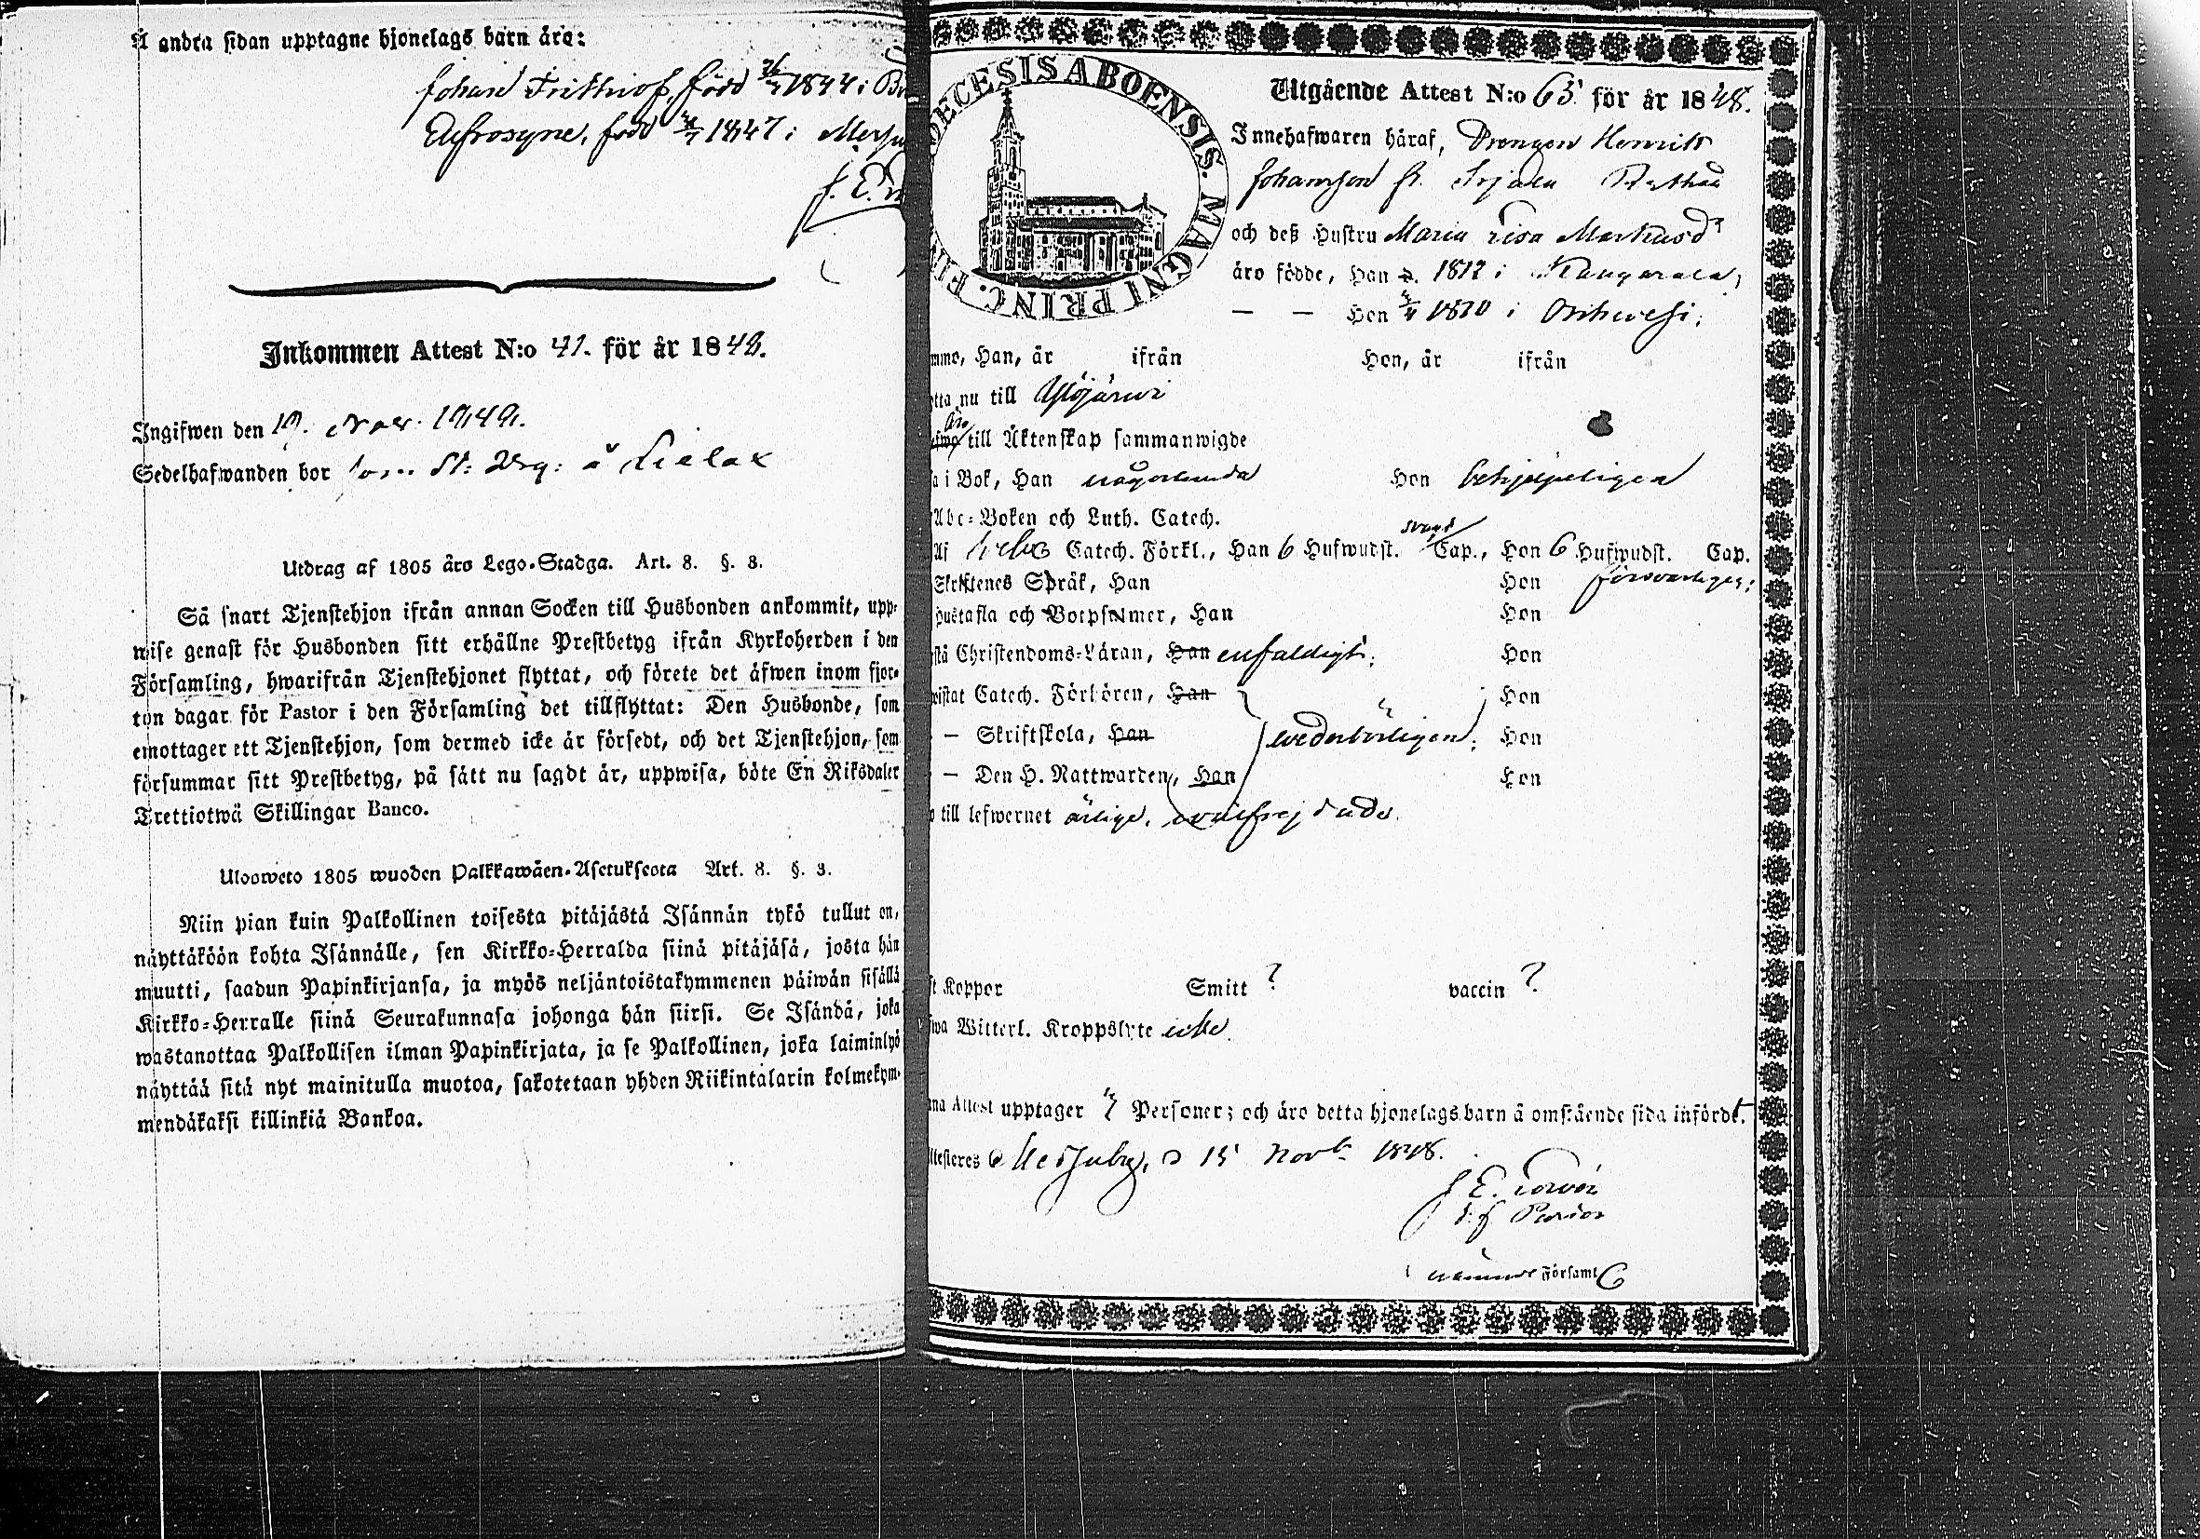 Å andra sidan upptagne hjonelags barn äro:
Johan Frithiof, född 1844 i
Eufrosyne, född 1847 i
J. E.
Inkommen Attest N:o 41. för år 1848.
Ingifwen den 19. Nov. 1848.
Sedelhafwanden bor som St: Drg: å Lielax
Utdrag af 1805 års Lego-Stadga. Art. 8. §. 3.
Så snart Tjenstehjon ifrån annan Socken till Husbonden ankommit, upp-
wise genast för Husbonden sitt erhållne Prestbetyg ifrån Kyrkoherden i den
Församling, hwarifrån Tjenstehjonet flyttat, och förete det äfwen inom fjor-
ton dagar för Pastor i den Församling det tillflyttat: Den Husbonde, som
emottager ett Tjenstehjon, som dermed icke är försedt, och det Tjenstehjon, som
försummar sitt Prestbetyg, på sätt nu sagdt är, uppwisa, böte En Riksdaler
Trettiotwå Skillingar Banco.
Ulosweto 1805 wuoden Palkkawäen-Asetuksesta Art. 8. §. 3.
Niin pian kuin Palkollinen toisesta pitäjästä Isännän tykö tullut on,
näyttäköön kohta Isännälle, sen Kirkko-Herralda siinä pitäjäsä, josta hän
muutti, saadun Papinkirjansa, ja myös neljäntoistakymmenen päiwän sisällä
Kirkko-Herralle siinä Seurakunnasa johonga hän siirsi. Se Isändä, joka
wastanottaa Palkollisen ilman Papinkirjata, ja se Palkollinen, joka laiminlyö
näyttää sitä nyt mainitulla muotoa, sakotetaan yhden Riikintalarin kolmekym-
mendäkaksi killinkiä Bankoa.
DECESIS ABOENSIS. MAGNI PRINC. FIN
Utgående Attest N:o 65 för år 1848.
Innehafwaren häraf, Drengen Henrik
Johansson fr.
och deß Hustru Maria Lisa Markusdr
äro födde, Han d. 1812 i Kangasala,
— — Hon 1820 i Orihwesi;
mmo, Han, år ifrån Hon, år ifrån
tta nu till Ylöjärwi
äro
efwa till Äktenskap sammanwigde
a i Bok, Han någorlunda Hon behjelpeligen
Abc-Boken och Luth. Catech.
Svagt
Af Catech. Förkl., Han 6 Hufwudst. Cap., Hon 6 Hufwudst. Cap.
Skriftenes Språk, Han Hon försvarligen;
Hustafla och Botpsalmer, Han Hon
stå Christendoms-Läran, Han enfaldigt; Hon
wistat Catech. Förhören, Han Hon
— Skriftskola, Han wederbörligen; Hon
— Den H. Nattwarden, Han Hon
till lefwernet ärlige, oc wälfrejdade.
ft Koppor Smitt ? vaccin ?
fwa Witterl. Kroppslyte icke.
na Attest upptager 4 Personer; och äro detta hjonelags barn å omstående sida införde.
ttesteras Messuby, d 15 Novb. 1848.
J. E.
Församl